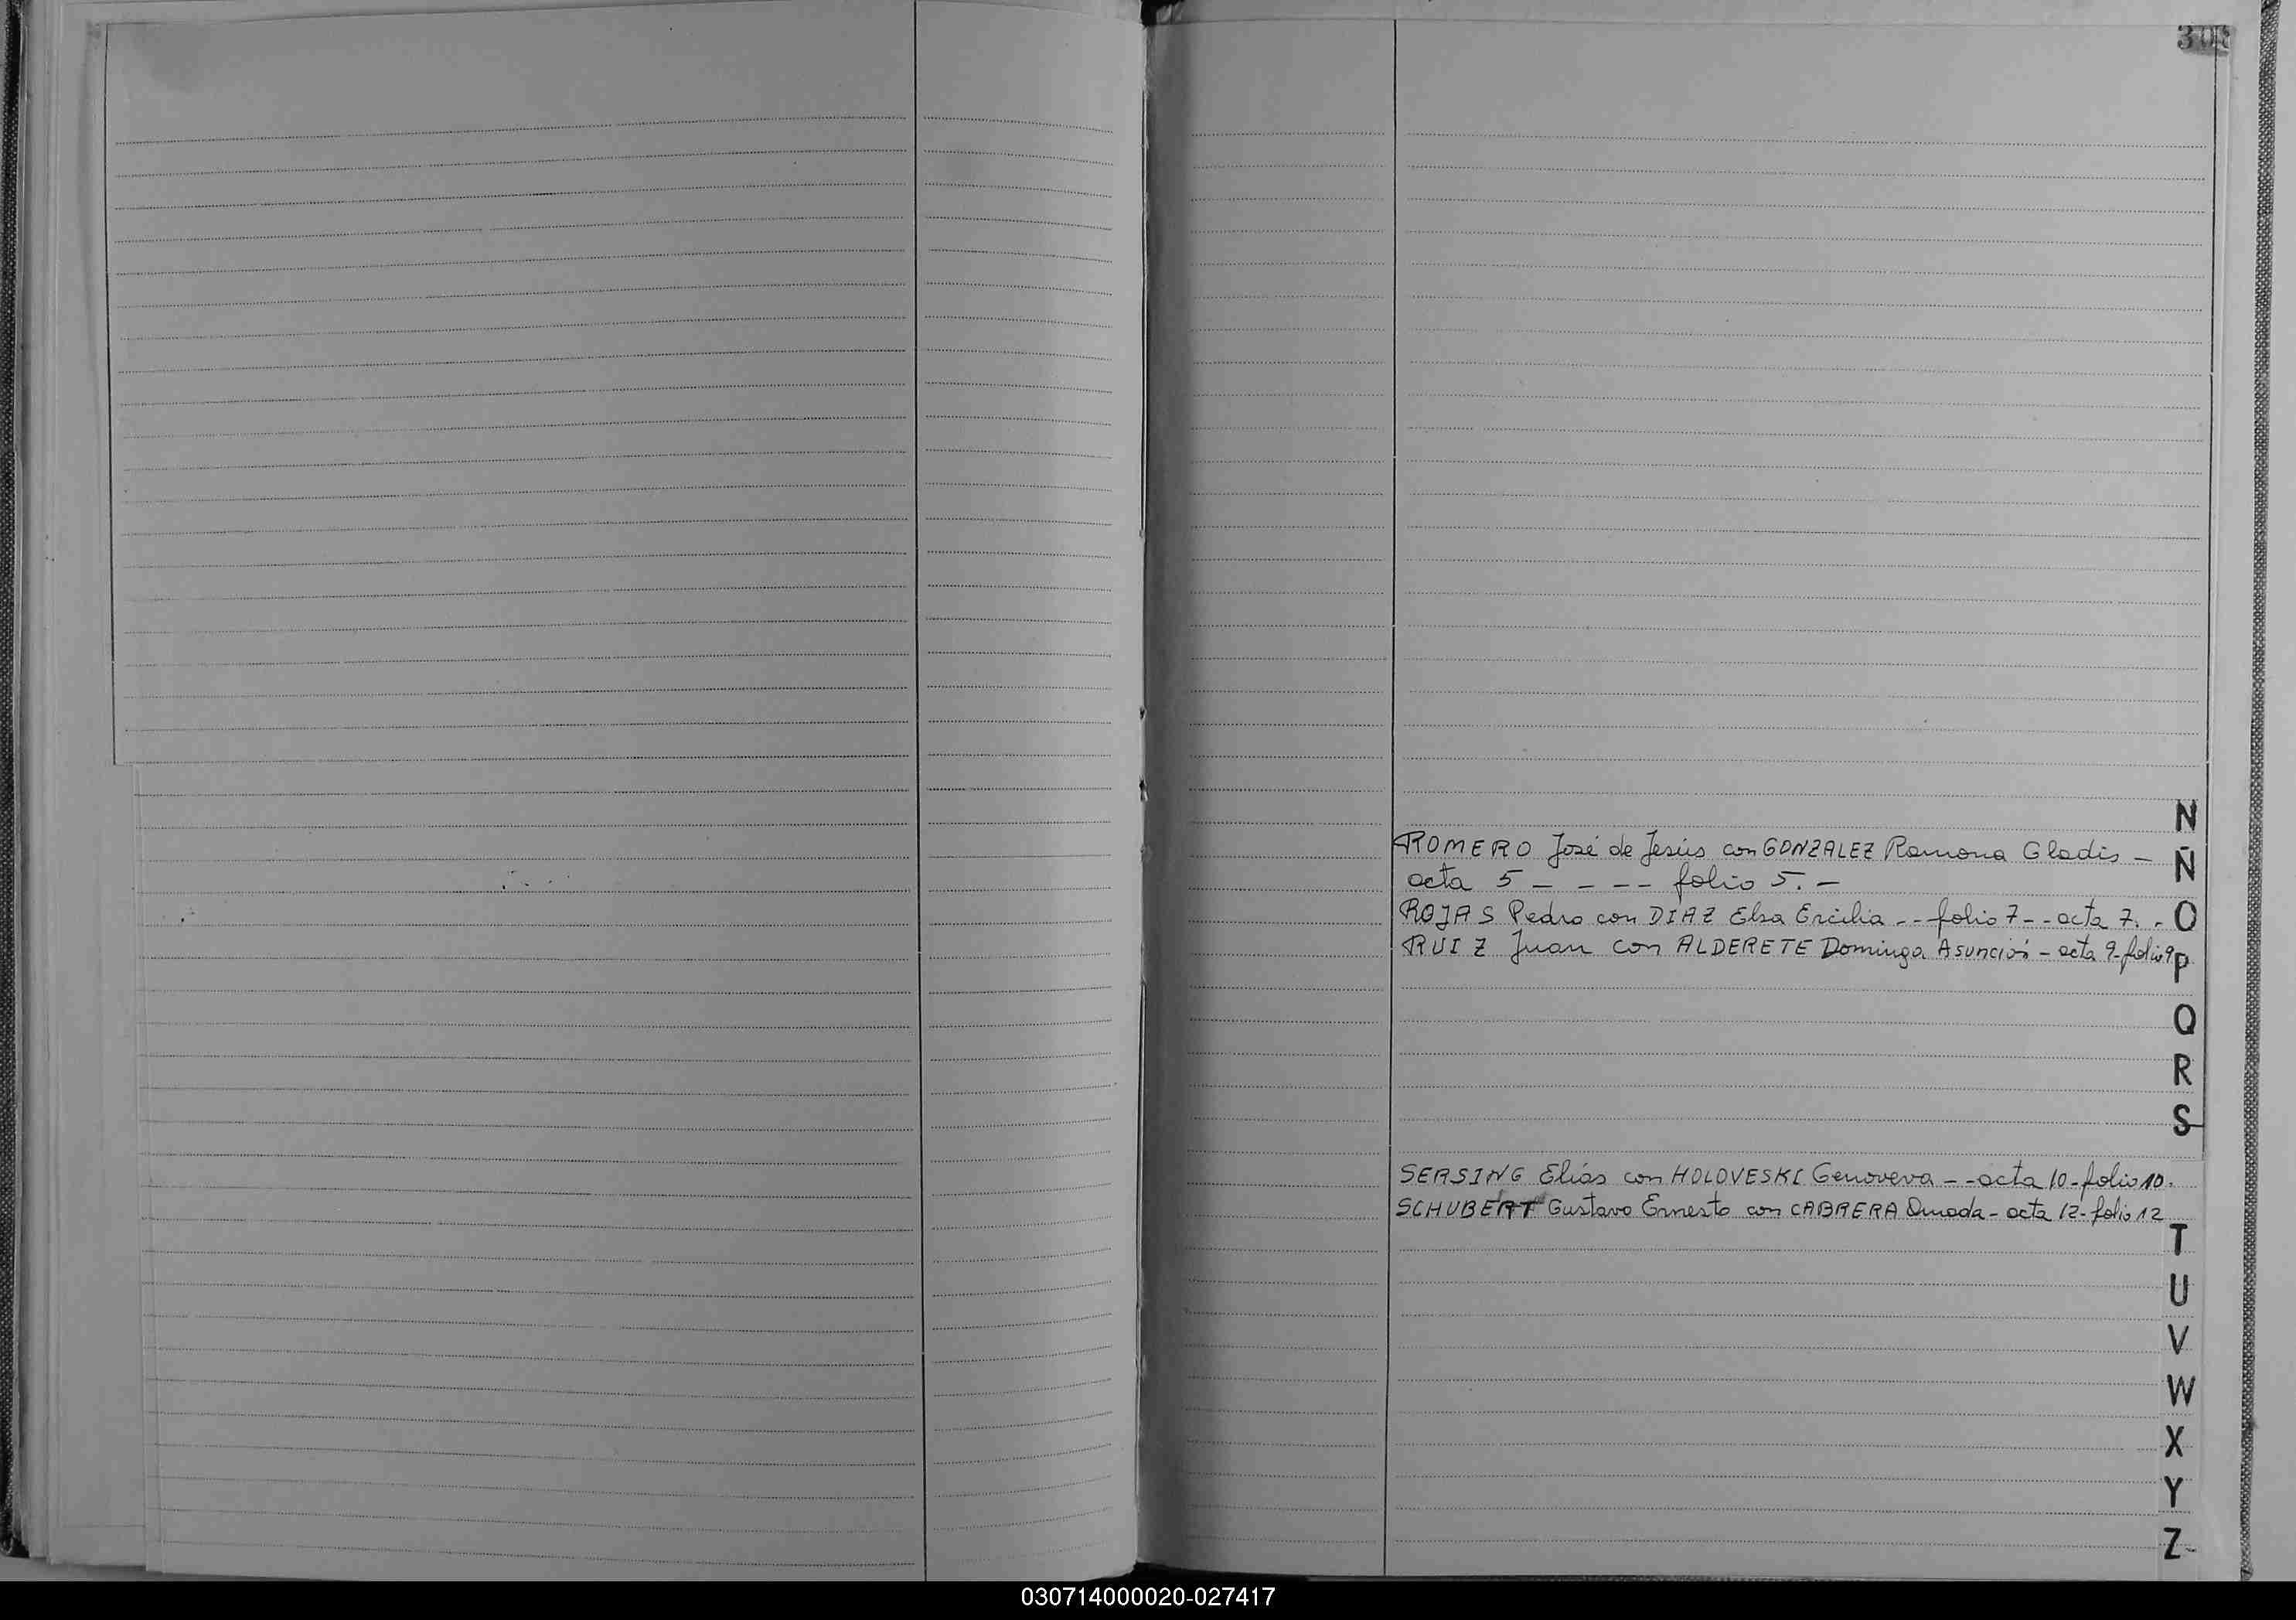 308
N
ROMERO José de Jesús con GONZALEZ Ramona Gladis –
Ñ
acta 5 – – – – folio 5. –
ROJAS Pedro con DIAZ Elsa Ercilia - - folio 7 - - acta 7. -
O
RUIZ Juan con ALDERETE Dominga Asunción - acta 9 - folio 9
P
Q
R
S
SERSING Elías con HOLOVESKI Genoveva - - acta 10 - folio 10.
SCHUBERT Gustavo Ernesto con CABRERA - acta 12 - folio 12
T
U
V
W
X
Y
Z
030714000020-027417